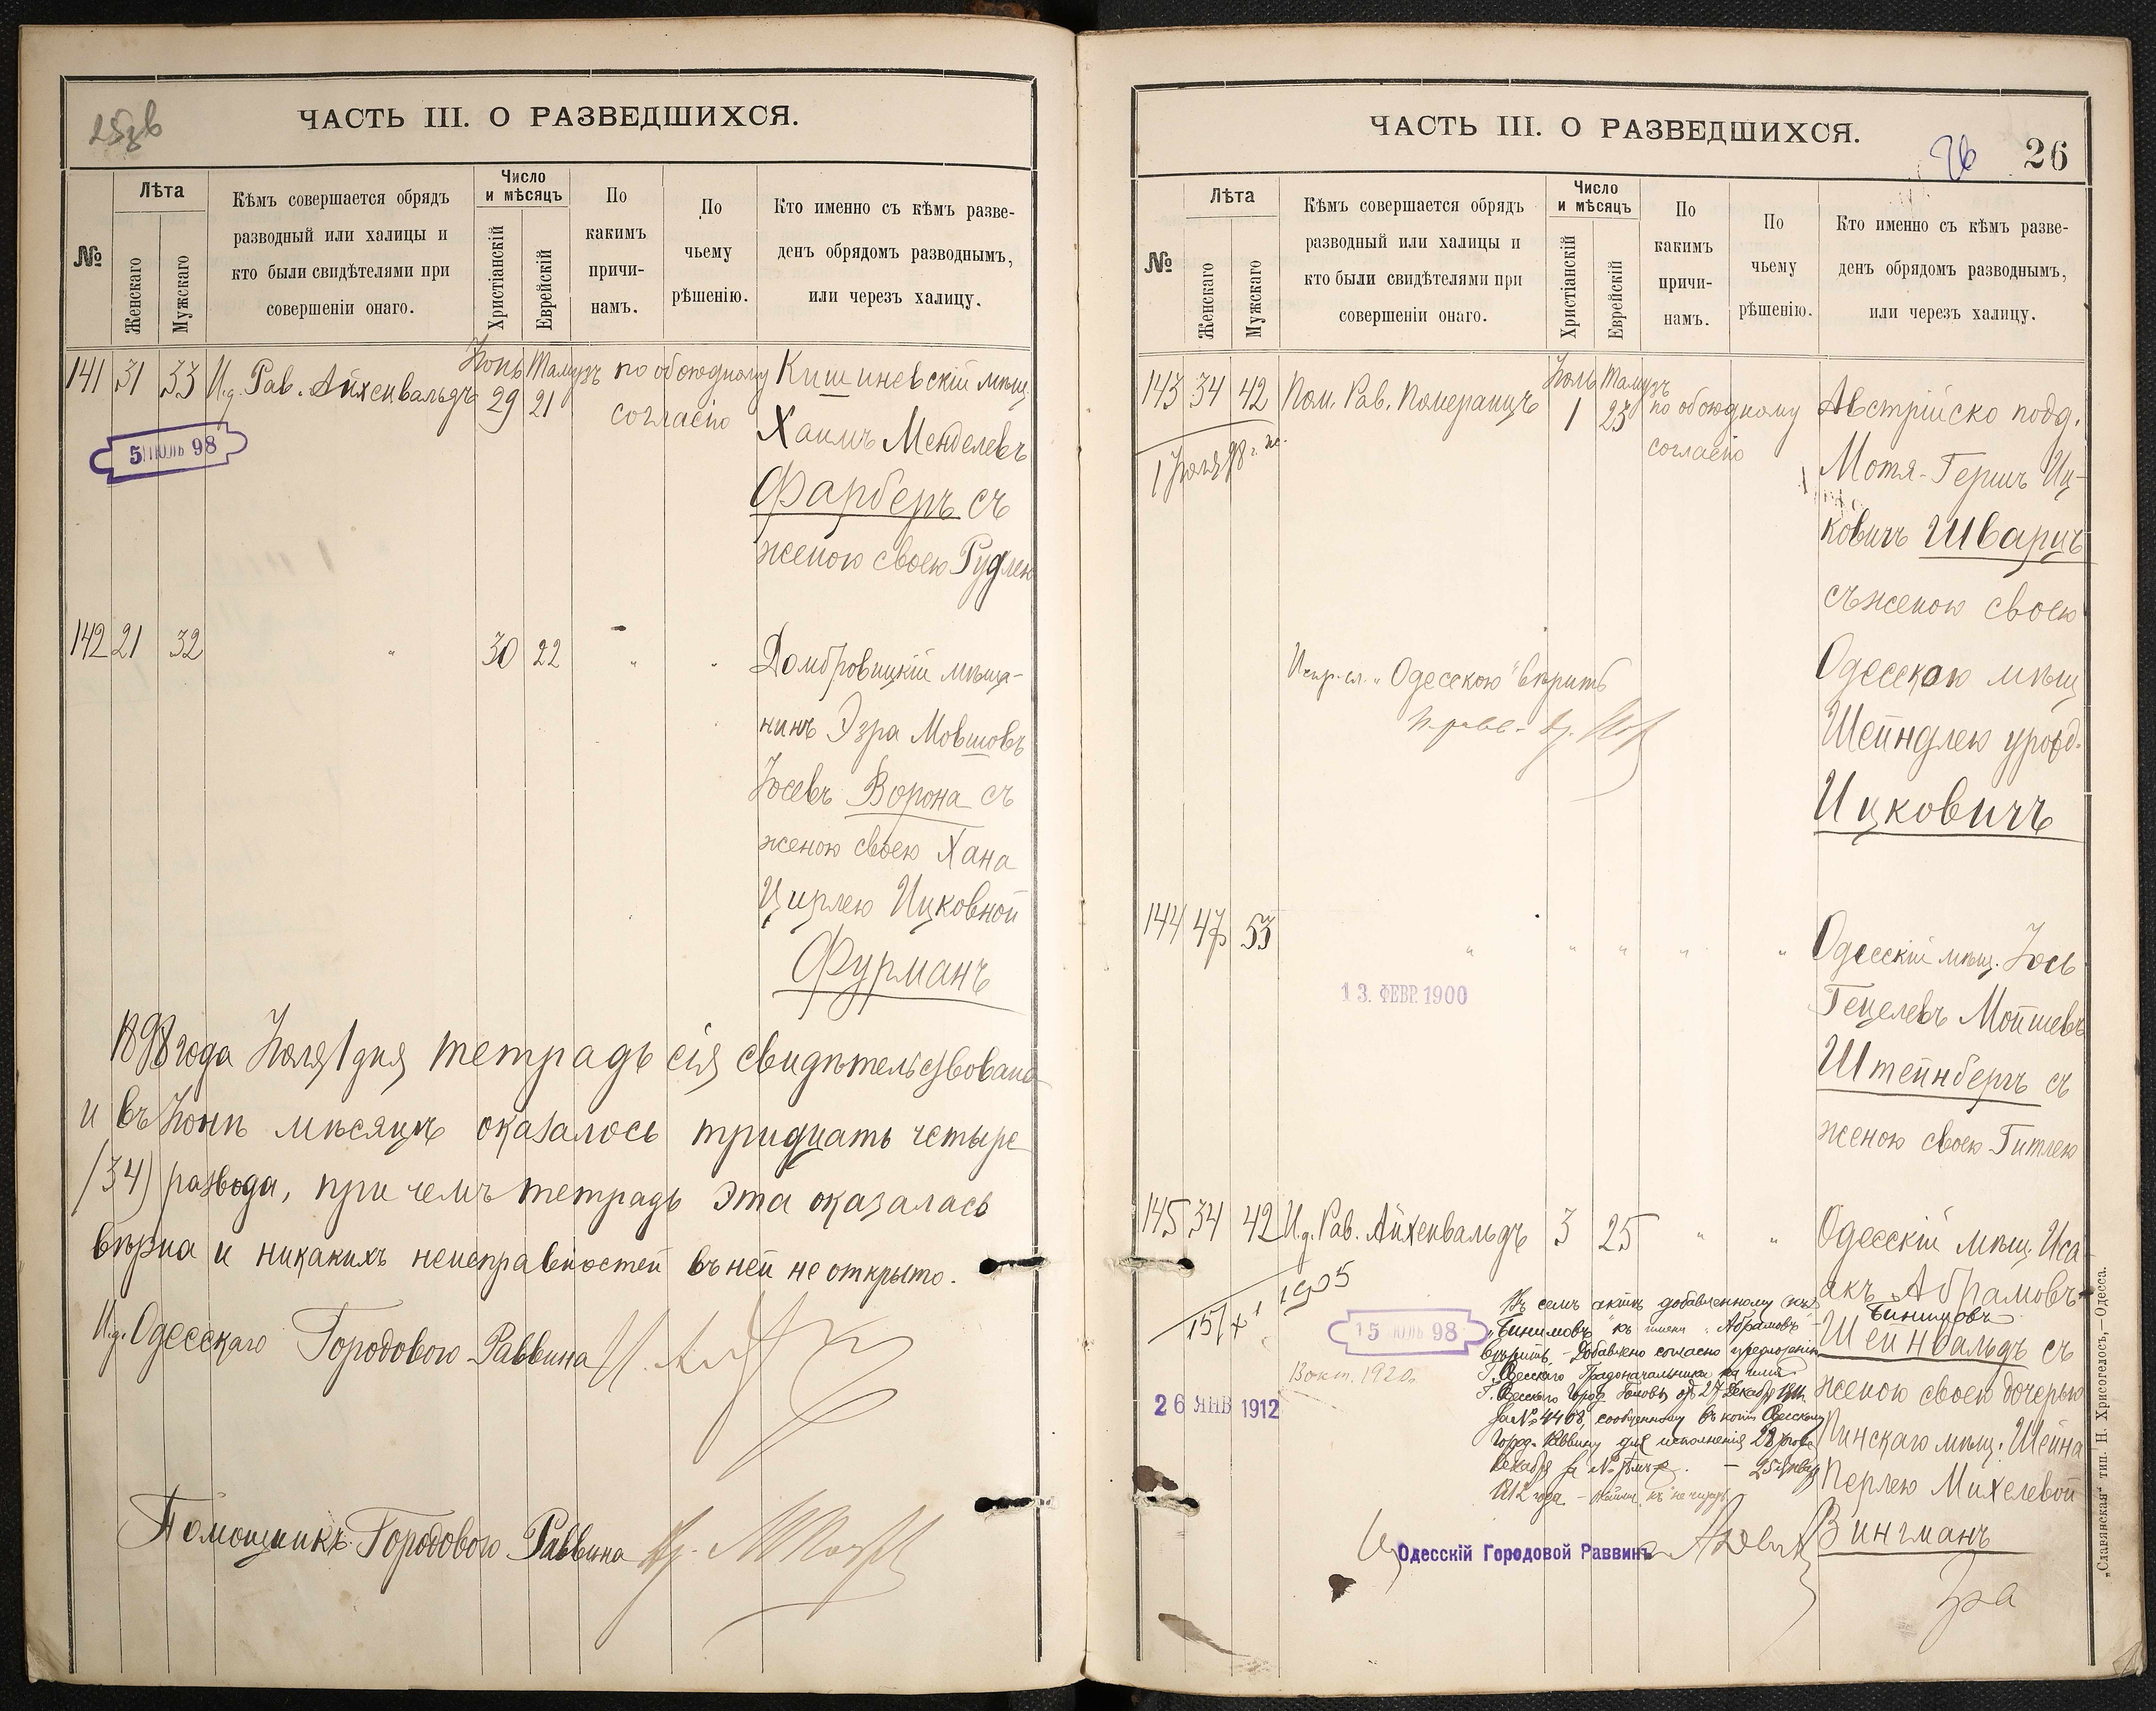 25 зв
ЧАСТЬ III. О РАЗВЕДШИХСЯ.
№
Лѣта
Женскаго
Мужскаго
Кѣмъ совершается обрядъ
разводный или халицы и
кто были свидѣтелями при
совершеніи онаго.
Число
и мѣсяцъ
Христіанскій
Еврейскій
По
какимъ
причи-
намъ.
По
чьему
рѣшенію.
Кто именно съ кѣмъ разве-
денъ обрядомъ разводнымъ,
или черезъ халицу.
141 31 33 И.д. Рав. Айхенвальдъ Іюнь 29 Тамузъ 21 по обоюдному согласію
Кишиневскій мѣщ.
Хаимъ Менделевъ
Фарберъ съ
женою своею Рудлею
5 ІЮЛЬ 98
142 21 32 " 30 22 " "
Домбровицкій мѣща-
нинъ Эзра Мовшовъ
Іосевъ Ворона съ
женою своею Хана
Цирлею Ицковной
Фурманъ
1898 года Іюля 1 дня тетрадь сія свидѣтельствована
и въ Іюнѣ мѣсяцѣ оказалось тридцать четыре
/34) развода, при чемъ тетрадь эта оказалась
вѣрна и никакихъ неисправностей въ ней не открыто.
И.д. Одесскаго Городового Раввина
Помощникъ Городового Раввина
ЧАСТЬ III. О РАЗВЕДШИХСЯ.
26 26
№
Лѣта
Женскаго
Мужскаго
Кѣмъ совершается обрядъ
разводный или халицы и
кто были свидѣтелями при
совершеніи онаго.
Число
и мѣсяцъ
Христіанскій
Еврейскій
По
какимъ
причи-
намъ.
По
чьему
рѣшенію.
Кто именно съ кѣмъ разве-
денъ обрядомъ разводнымъ,
или черезъ халицу.
143 34 42 Пом. Рав. Померанцъ Іюль 1 Тамузъ 23 по обоюдному согласію
1 Іюля 98 г.
Австрійско подд.
Мотя-Гершъ Иц-
ковичъ Шварцъ
съ женою своею
Одесскою мѣщ
Шейндлею урожд.
Ицковичъ
Испр. сл. "Одесскою" вѣрить
144 47 53 " " " " "
Одесскій мѣщ. Іось
Гецелевъ Мойшевъ
Штейнбергъ съ
женою своею Гитлею
13. ФЕВР. 1900
145 34 42 И.д. Рав. Айхенвальдъ 3 25 " "
Одесскій мѣщ. Иса-
акъ Абрамовъ-
Бинимовъ
Шейнвальдъ съ
женою своею дочерью
Пинскаго мѣщ. Шейна
Перлею Михелевой
Вингманъ
15/X 1905
15 ІЮЛЬ 98
13 окт. 1920
26 ЯНВ 1912
Въ семъ актѣ добавленному
"Бинимовъ" къ имени "Абрамовъ"
вѣрить. – Добавлено согласно предложенію
Г. Одесскаго Градоначальника на имя
Г. Одесскаго Город. Головы отъ 27 Декабря
за № 4468, сообщенному въ копіи Одесскому
Город. Раввину для исполненія 28
Декабря за №
1912 года
Одесскій Городовой Раввинъ
„Славянская" тип. Н. Хрисогелосъ,—Одесса.